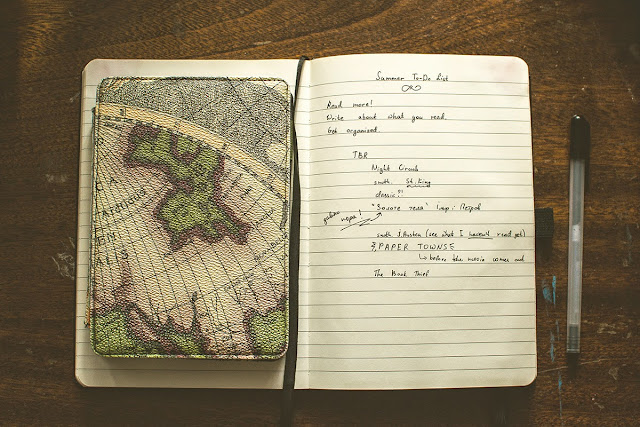 Summer To-Do List
Read more!
Write about what you read.
Get organised.
TBR
Night Circus
smth. St. King
classic?!
"Square
nope!
smth J. Austen (see what I haven't read yet)
PAPER TOWNS
↳ before the movie comes out
The Book Thief